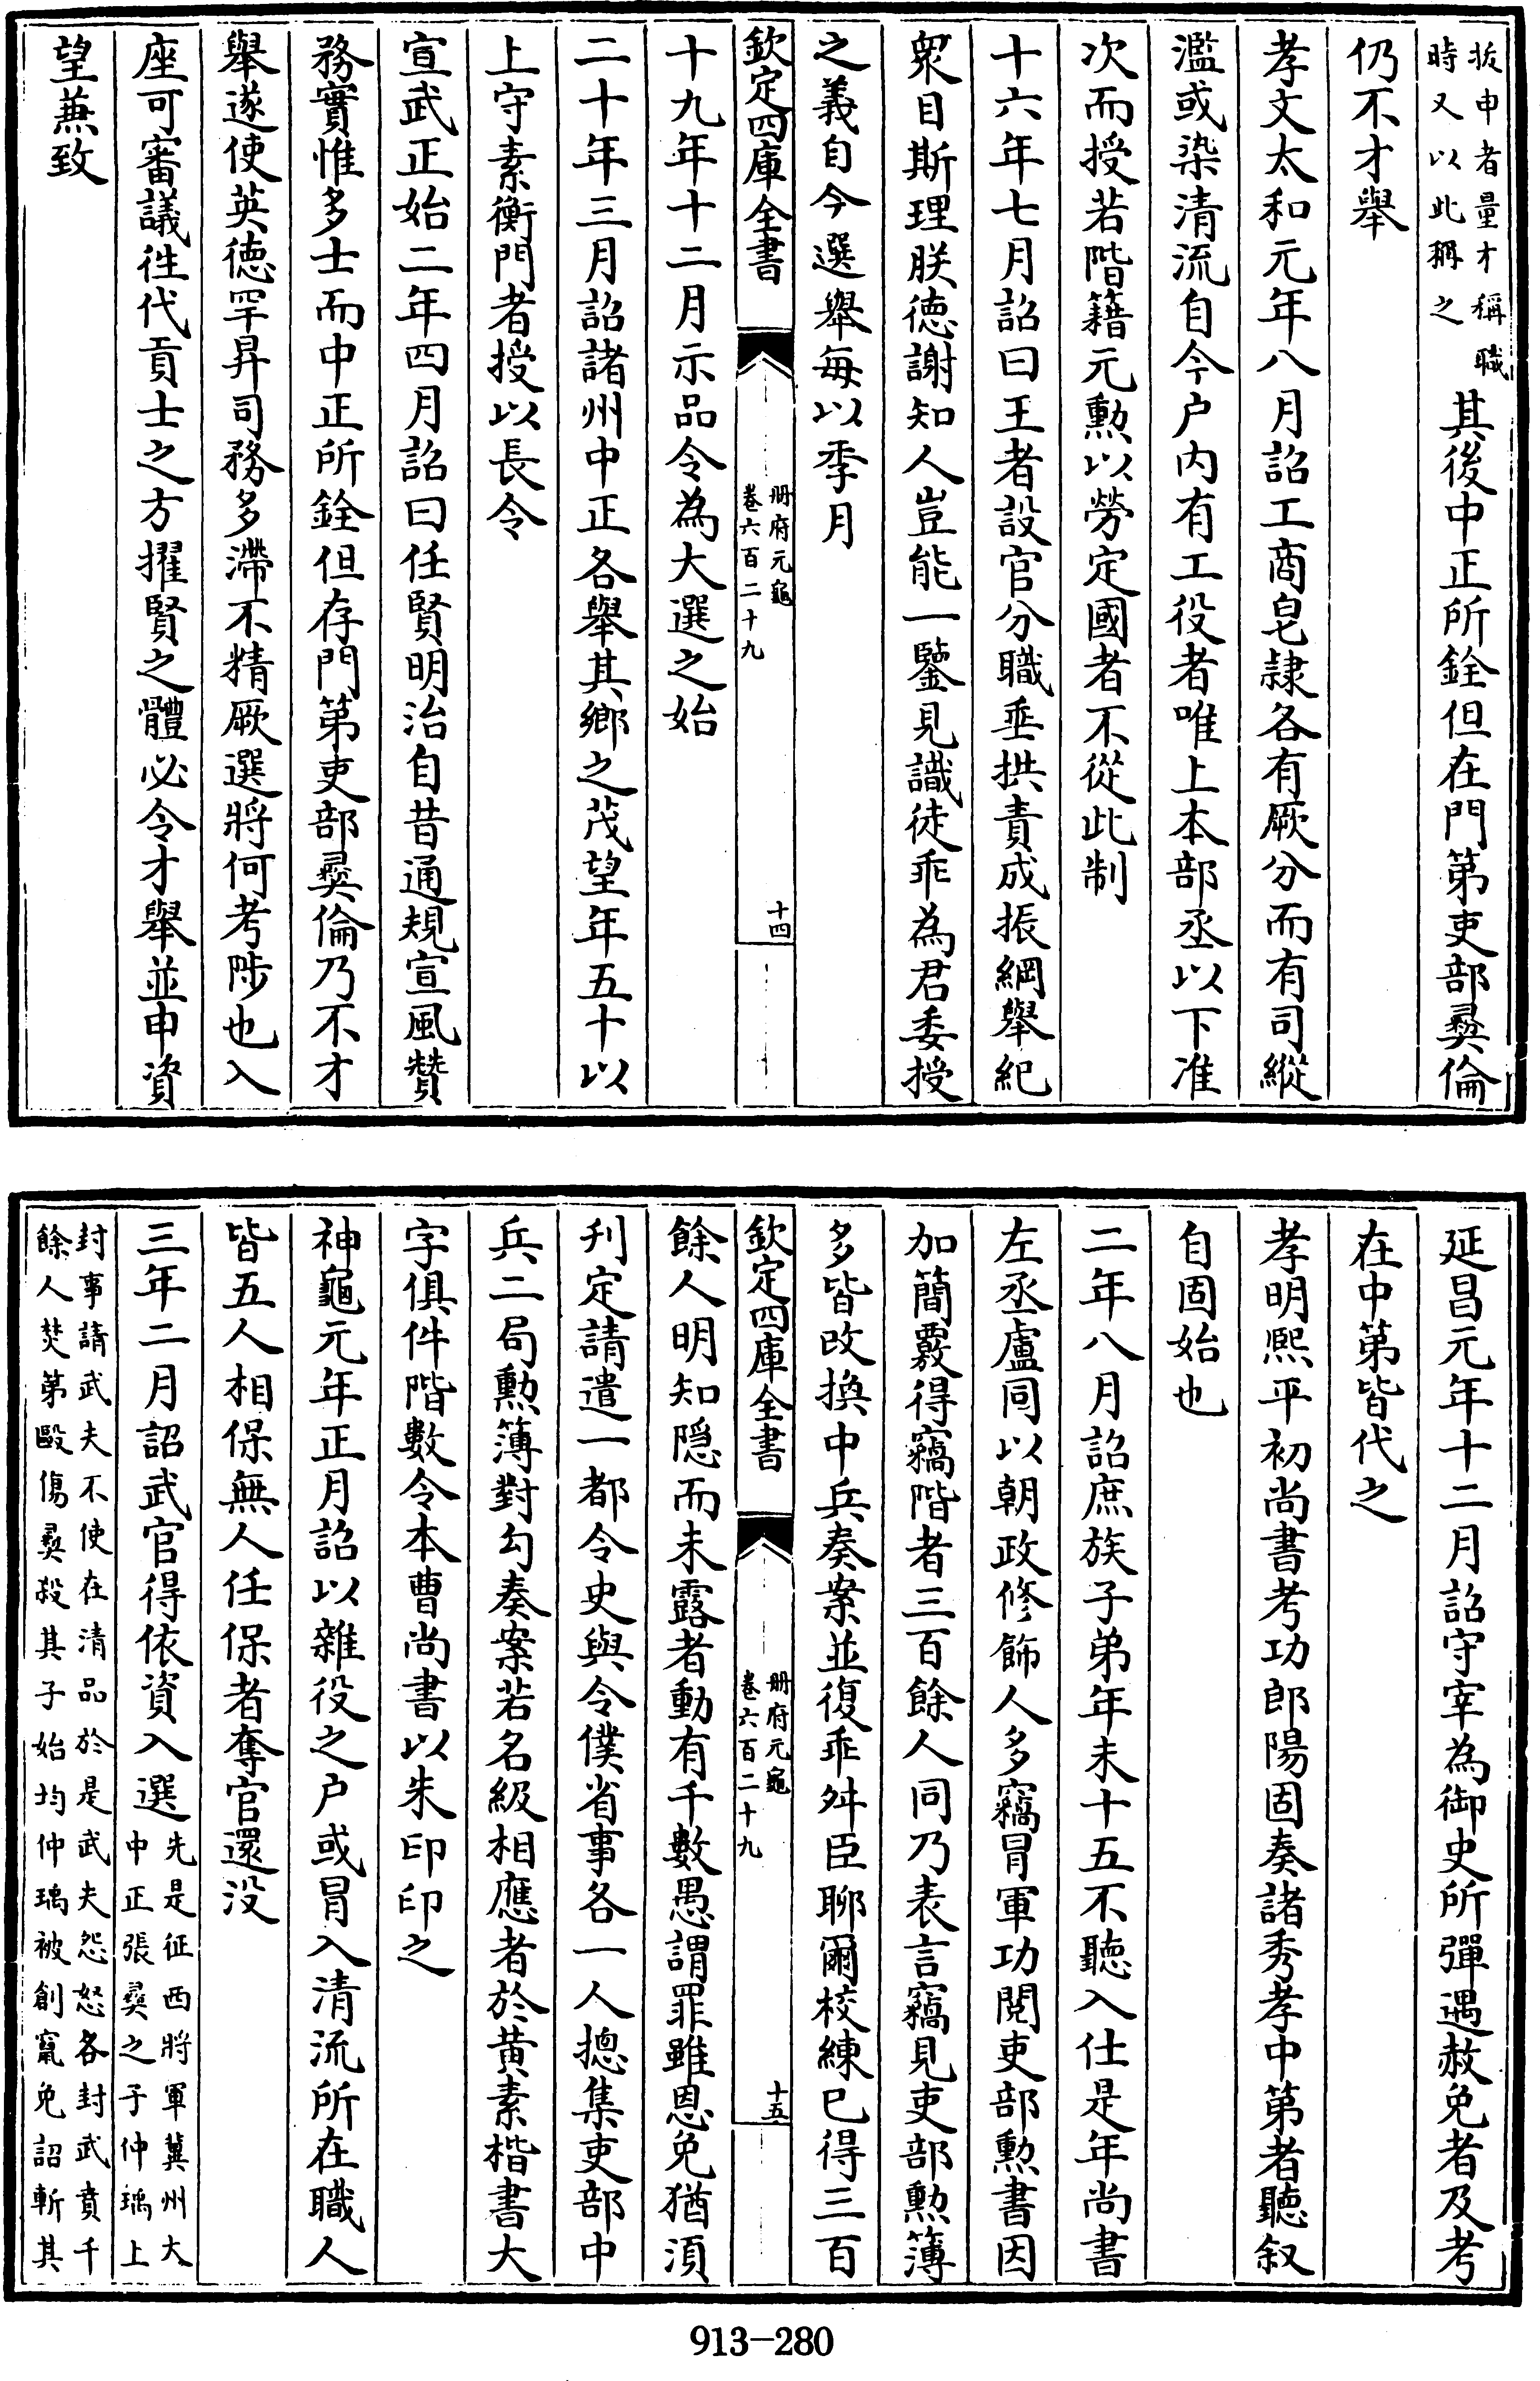 拔申者量才稱職
時又以此稱之
其後中正所銓但在門第吏部彛倫
仍不才舉
孝文太和元年八月詔工商皂隸各有厥分而有司縱
濫或染清流自今户内有工役者唯上本部丞以下准
次而授若階籍元勲以勞定國者不從此制
十六年七月詔曰王者設官分職垂拱責成振綱舉紀
衆目斯理朕徳謝知人豈能一鑒見識徒乖為君委授
之義自今選舉每以季月
欽定四庫全書
册府元龜
卷六百二十九
十四
十九年十二月示品令為大選之始
二十年三月詔諸州中正各舉其鄉之茂望年五十以
上守素衡門者授以長令
宣武正始二年四月詔曰任賢明治自昔通規宣風贊
務實惟多士而中正所銓但存門第吏部彛倫乃不才
舉遂使英徳罕昇司務多滯不精厥選將何考陟也入
座可審議徃代貢士之方擢賢之體必令才舉並申資
望兼致
延昌元年十二月詔守宰為御史所彈遇赦免者及考
在中第皆代之
孝明熙平初尚書考功郎陽固奏諸秀孝中第者聽叙
自固始也
二年八月詔庶族子弟年未十五不聽入仕是年尚書
左丞盧同以朝政修飾人多竊冒軍功閱吏部勲書因
加簡覈得竊階者三百餘人同乃表言竊見吏部勲簿
多皆改換中兵奏案並復乖舛臣聊爾校練已得三百
欽定四庫全書
册府元龜
卷六百二十九
十五
餘人明知隠而未露者動有千數愚謂罪雖恩免猶須
刋定請遣一都令史與令僕省事各一人摠集吏部中
兵二局勲簿對勾奏案若名級相應者於黄素楷書大
字俱件階數令本曹尚書以朱印印之
神龜元年正月詔以雜役之户或冒入清流所在職人
皆五人相保無人任保者奪官還没
三年二月詔武官得依資入選
先是征西將軍冀州大
中正張彛之子仲瑀上
封事請武夫不使在清品於是武夫怨怒各封武賁千
餘人焚第毆傷彛殺其子始均仲瑀被創竄免詔斬其
913-280